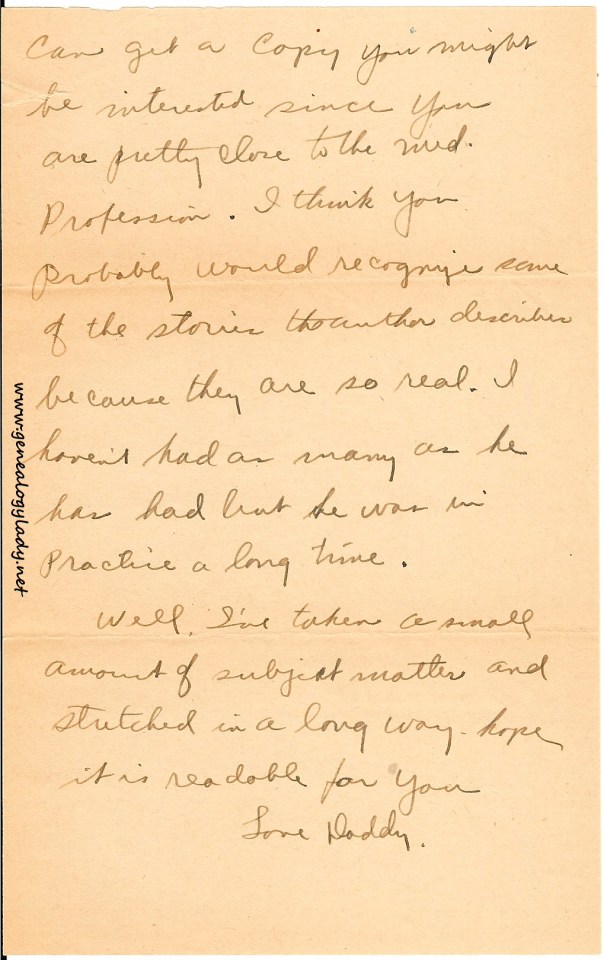 Can get a copy you might
be interested since you
are pretty close to the med.
Profession. I think you
probably would recognize some
of the stories the author describes
because they are so real. I
haven't had as many as he
has had but he was in
Practice a long time.
Well, I've taken a small
amount of subject matter and
stretched in a long way - hope
it is readable for you
Love Daddy.
www.genealogylady.net